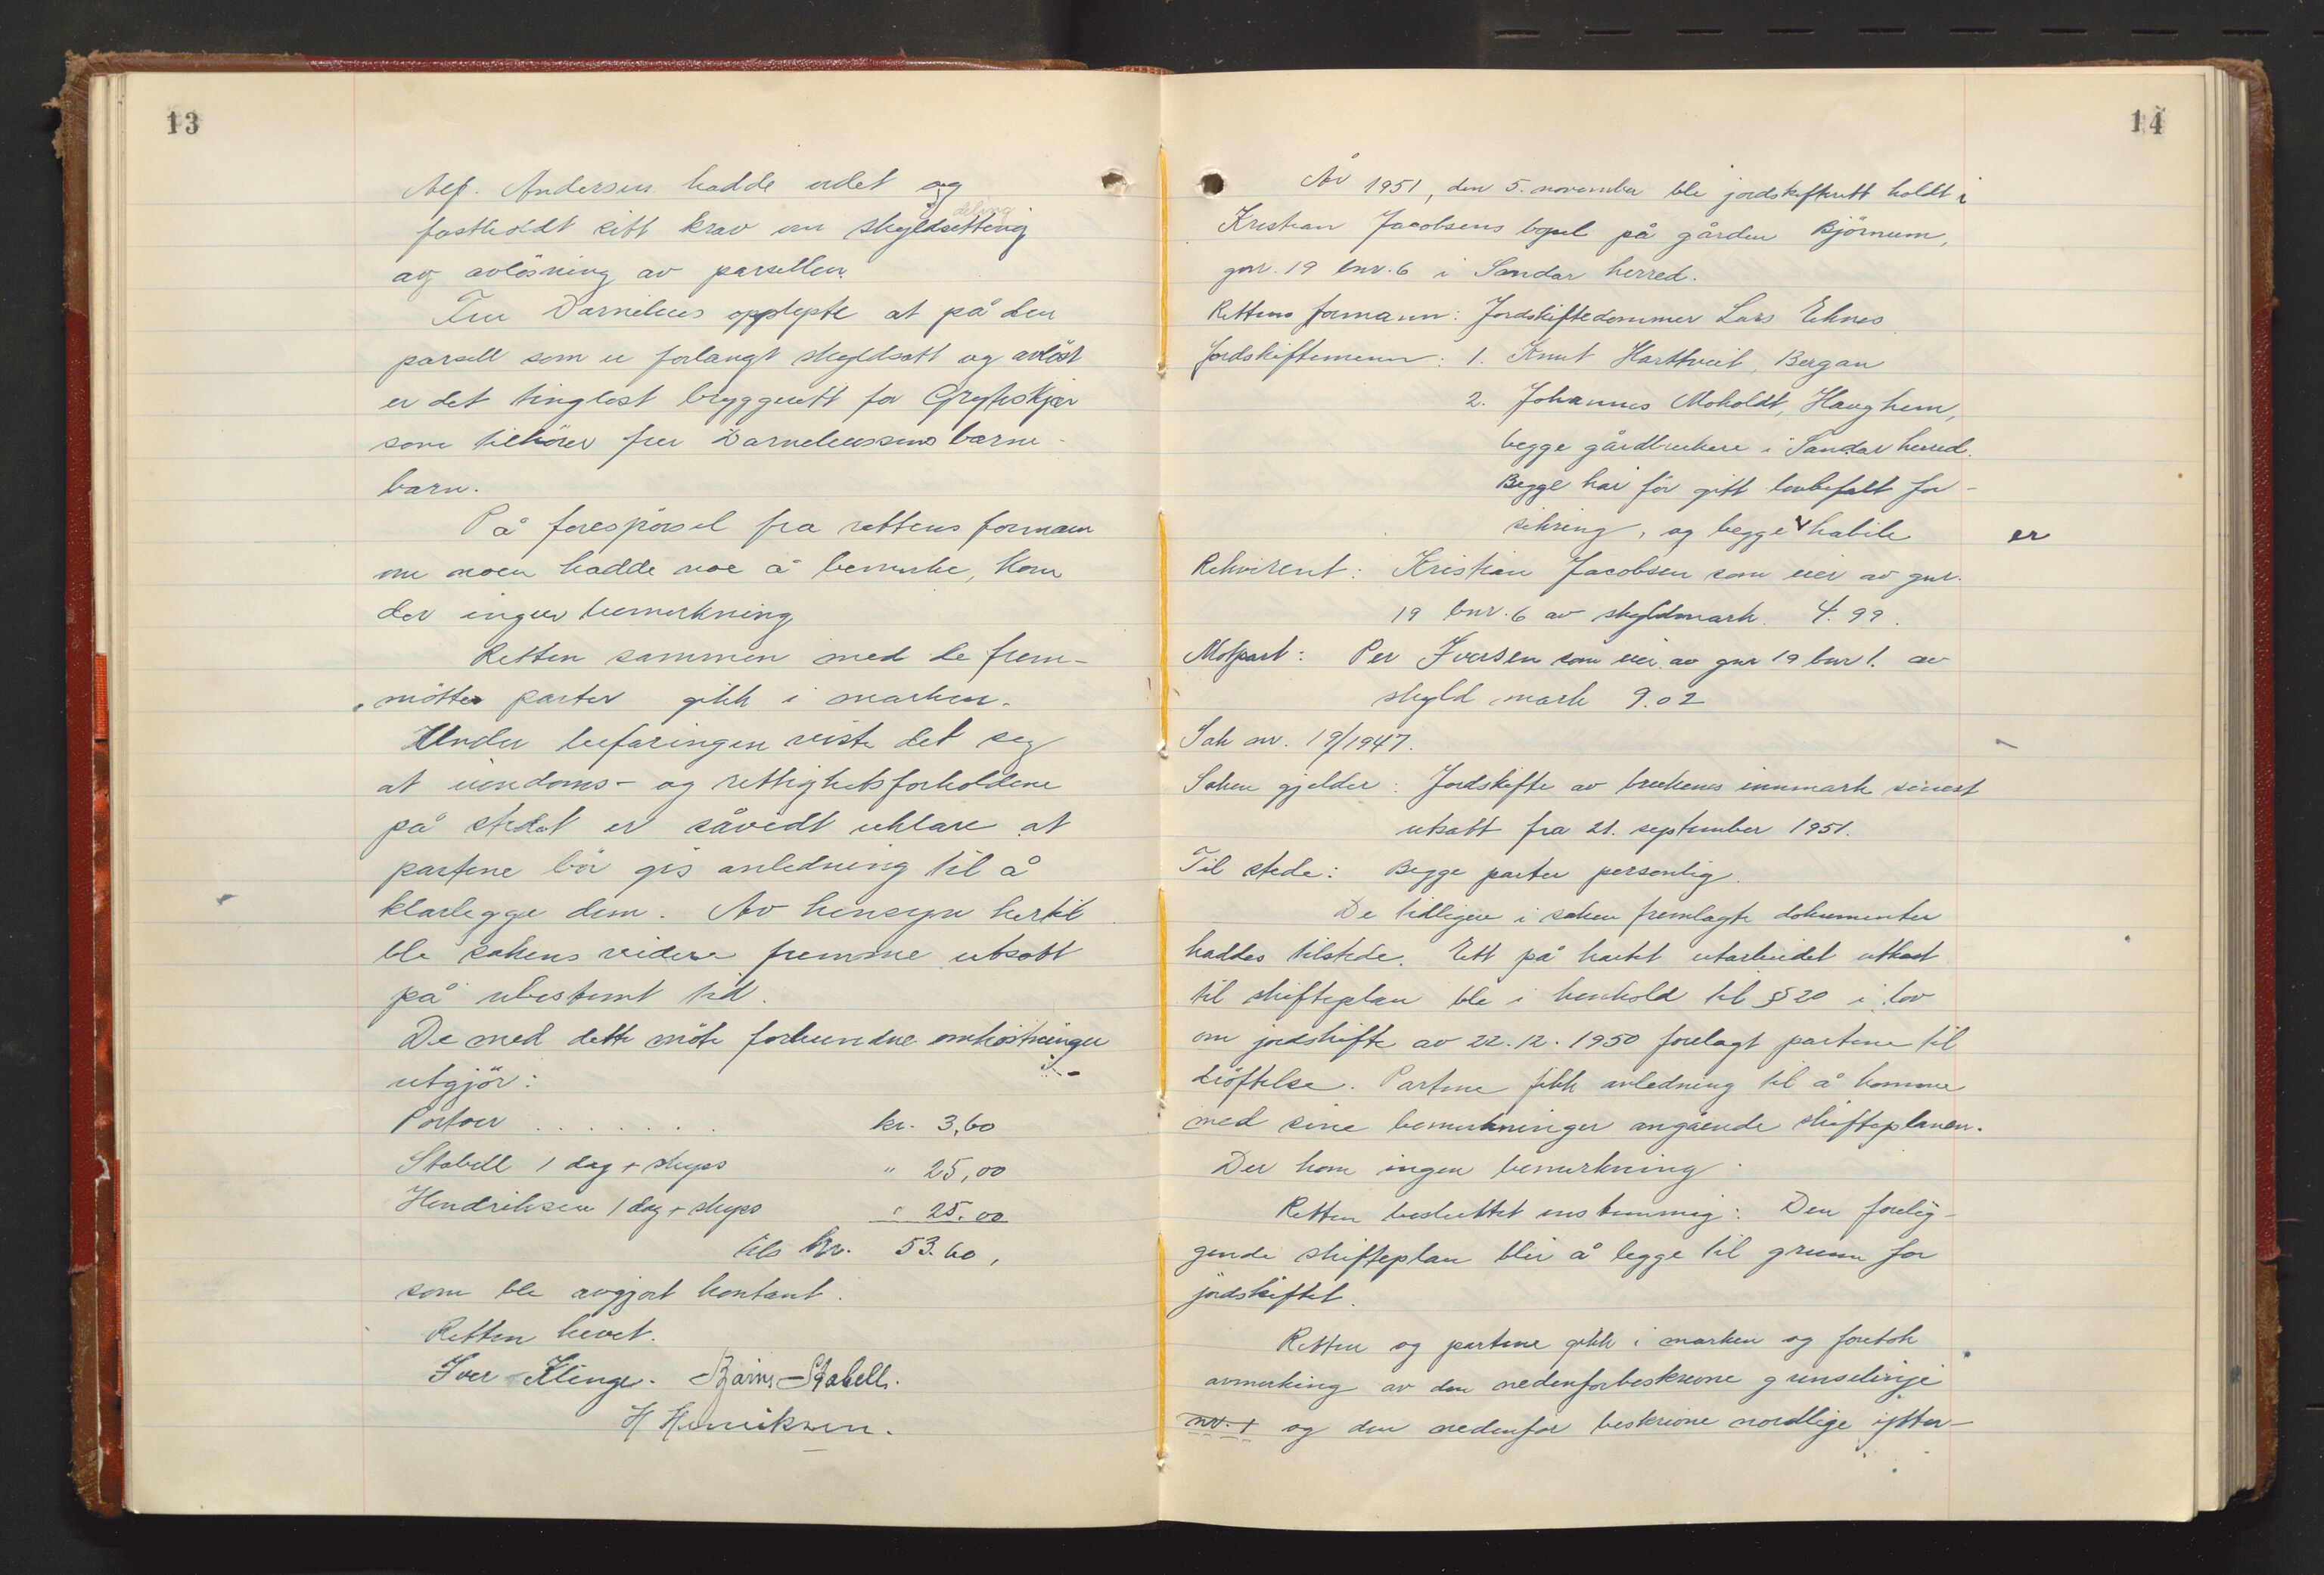 13
Alf. Andersen hadde ordet og
fastholdt sitt krav om skyldsetting
deling
og avlösning av parsellen.
Fru Darnelius opplyste at på den
parsell som er forlangt skyldsatt og avlöst
er det tinglest bryggerett for Gryteskjær
som tilhörer fru Darneliussens barne-
barn.
På forespörsel fra rettens formann
om noen hadde noe å bemerke, kom
der ingen bemerkning
Retten sammen med de frem-
mötte parter gikk i marken.
Under befaringen viste det seg
at eiendoms- og rettighetsforholdene
på stedet er såvidt uklare at
partene bör gis anledning til å
klarlegge dem. Av hensyn hertil
ble sakens videre fremme utsatt
på ubestemt tid.
De med dette möte forbundne omkostninger
utgjör:
Portoer . . . . . . . kr. 3,60
Stabell 1 dag + skyss " 25,00
Hendriksen 1 dag + skyss " 25.00
tils kr. 53.60,
som ble avgjort kontant.
Retten hevet.
Iver Klinge. Bjarne Stabell.
H Henriksen.
14
År 1951, den 5. november ble jordskifterett holdt i
Kristian Jacobsens bopel på gården Björnum,
gnr. 19 bnr. 6 i Sandar herred.
Rettens formann: Jordskiftedommer Lars Eknes
Jordskiftemenn: 1. Knut Harttveit, Bergan
2. Johannes Moholdt, Haughem,
begge gårdbrukere i Sandar herred.
Begge har för gitt lovbefalt for-
sikring, og begge v habile
er
Rekvirent: Kristian Jacobsen som eier av gnr.
19 bnr. 6 av skyldmark 4.99.
Motpart: Per Iversen som eier av gnr 19 bnr 1. av
skyld mark 9.02
Sak nr. 19/1947.
Saken gjelder: Jordskifte av brukenes innmark senest
utsatt fra 21. september 1951.
Til stede: Begge parter personlig.
De tidligere i saken fremlagte dokumenter
haddes tilstede. Ett på kartet utarbeidet utkast
til skifteplan ble i henhold til § 20 i lov
om jordskifte av 22.12.1950 forelagt partene til
dröftelse. Partene fikk anledning til å komme
med sine bemerkninger angående skifteplanen.
Der kom ingen bemerkning.
Retten besluttet enstemmig: Den forelig-
gende skifteplan blir å legge til grunn for
jordskiftet.
Retten og partene gikk i marken og foretok
avmerking av den nedenforbeskrevne grenselinje
nr. 1 og den nedenfor beskrevne nordlige ytter-